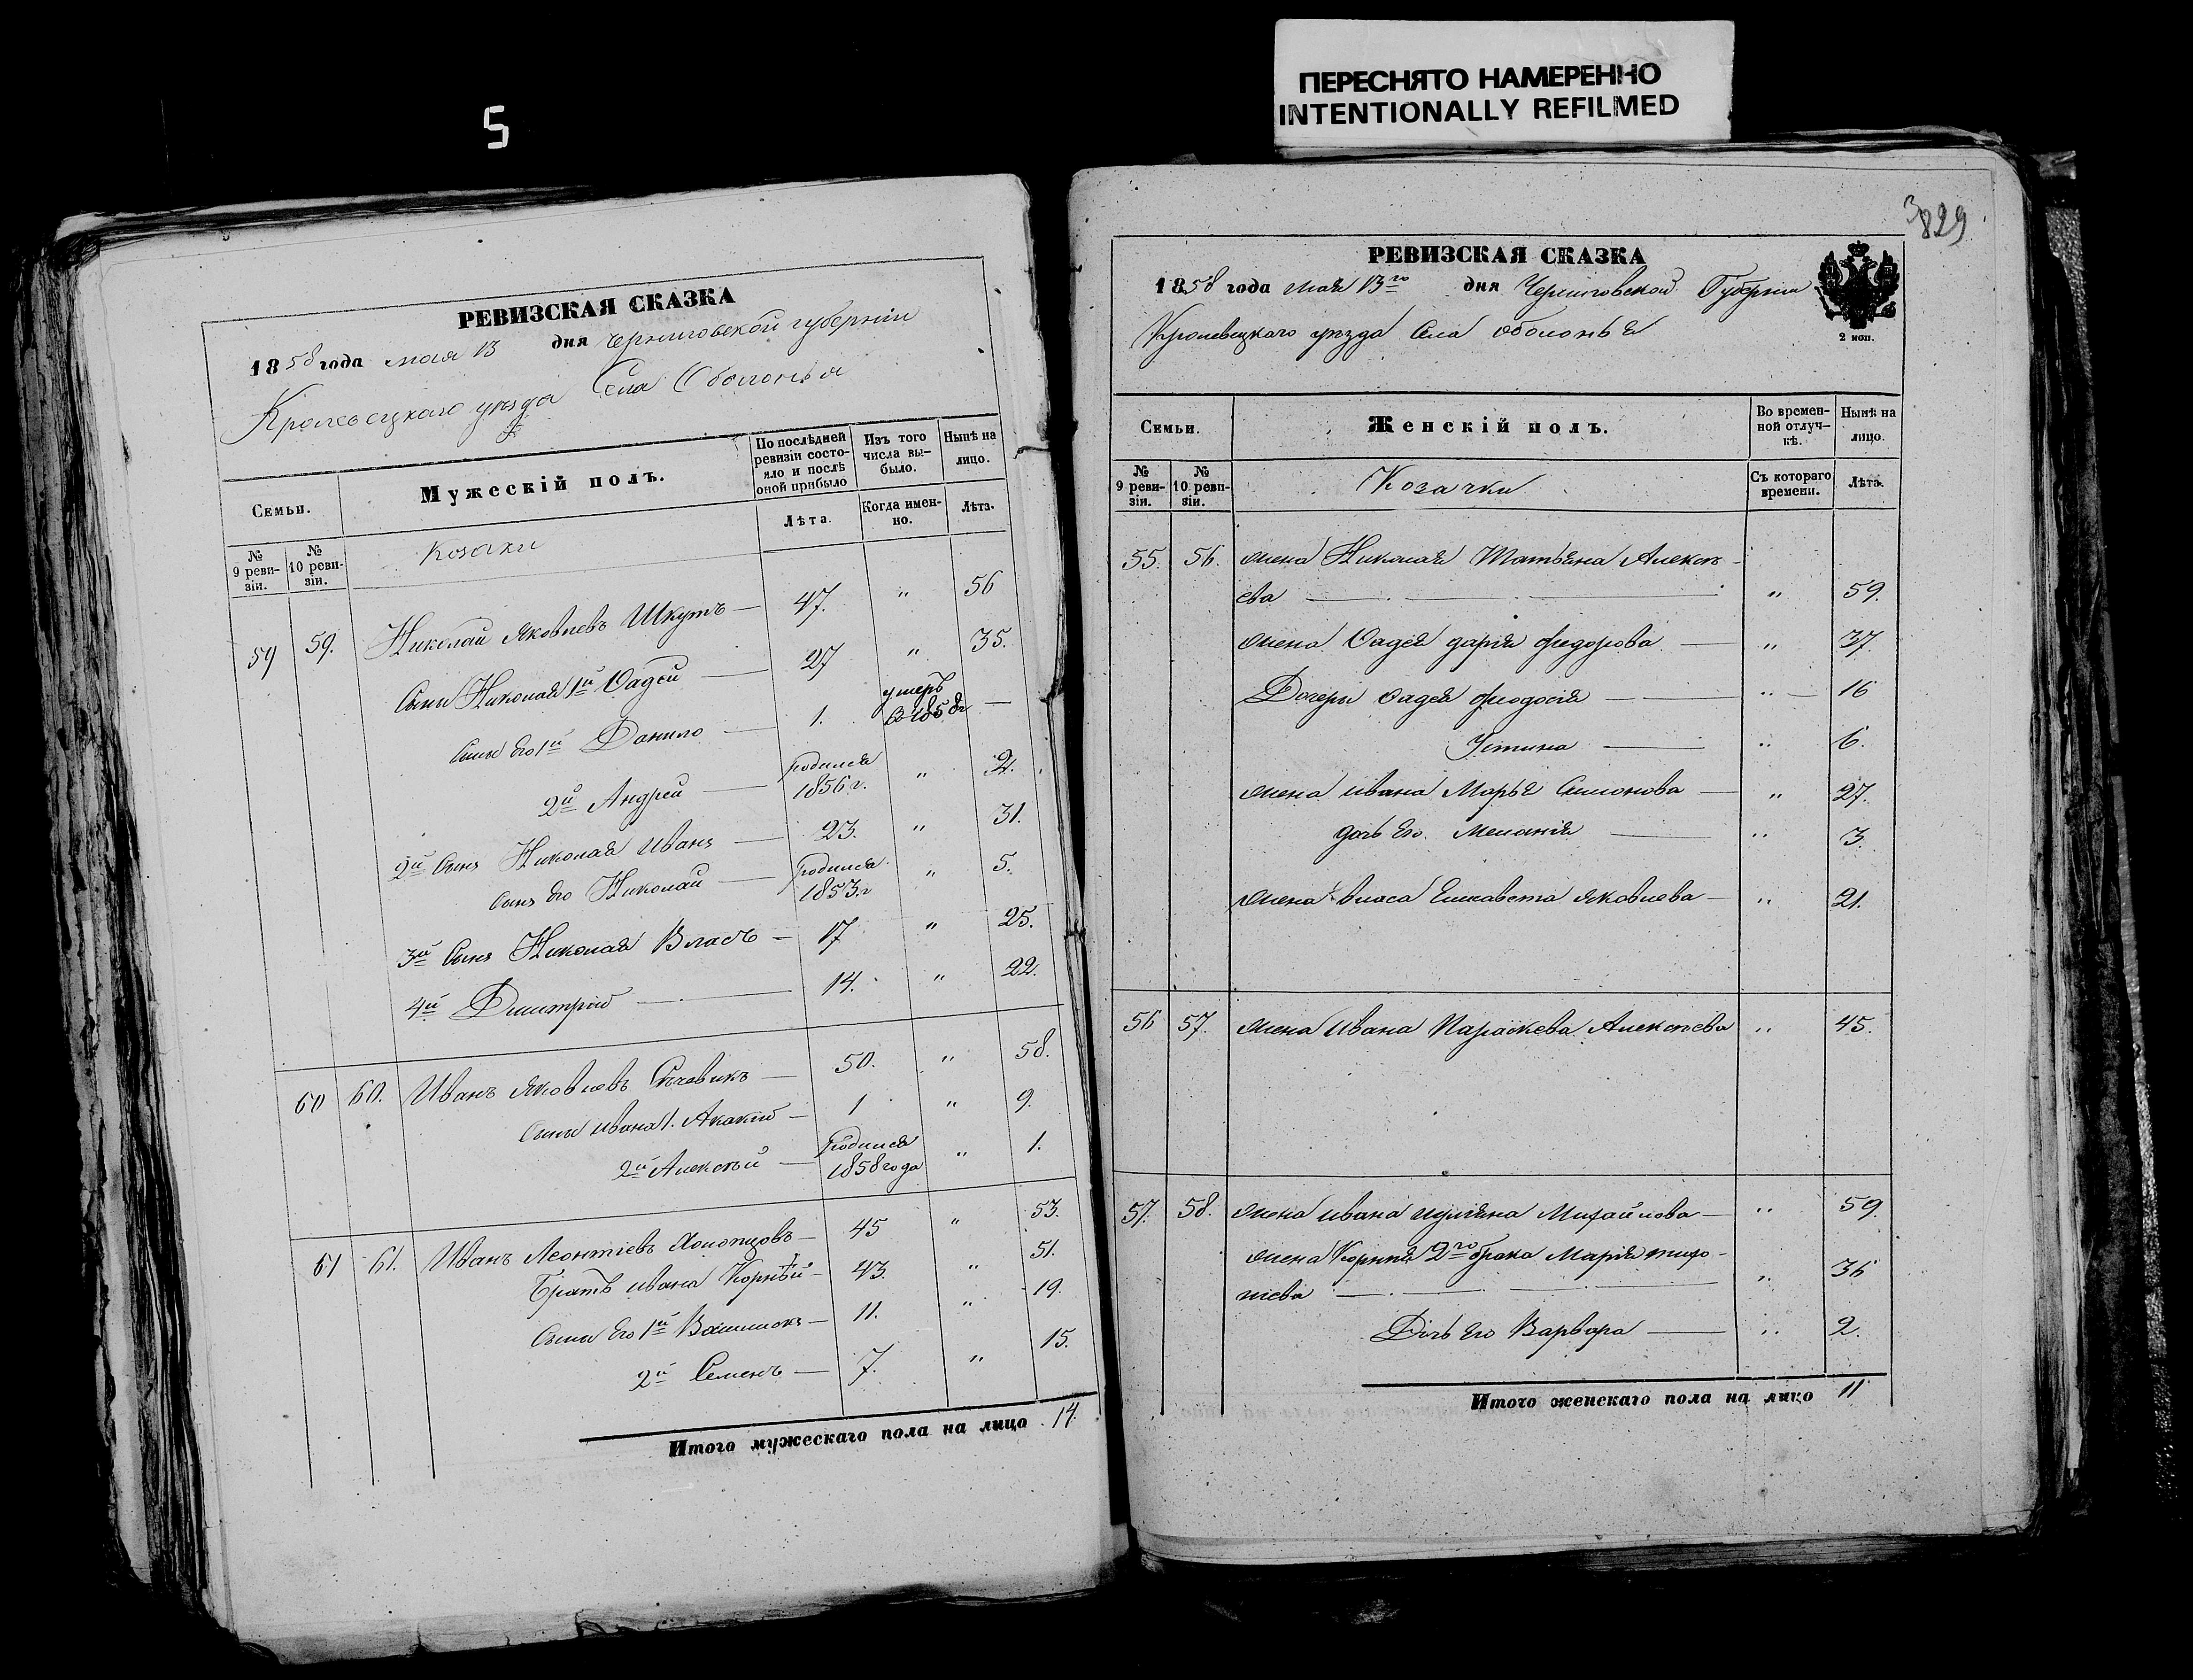 5
ПЕРЕСНЯТО НАМЕРЕННО
INTENTIONALLY REFILMED
РЕВИЗСКАЯ СКАЗКА
1858 года мая 13 дня Черниговской губерніи
Кролевецкаго уѣзда Села Оболонья
Семьи.
Мужескій полъ.
По послѣдней ревизіи состояло и послѣ оной прибыло
Изъ того числа выбыло.
Нынѣ на лицо.
№ 9 ревизіи.
№ 10 ревизіи.
Козаки
Лѣта.
Когда именно.
Лѣта.
59 59. Николай Яковлевъ Шкутъ — 47. " 56
Сыны Николая 1й Фадей — 27 " 35.
Сыны Его 1й Данило — 1. умеръ в 1858г —
2й Андрей — родился 1856 г. " 2.
2й Сынъ Николая Иванъ — 23. " 31.
Сынъ Его Николай — родился 1853 г " 5.
3й Сынъ Николая Власъ — 17 " 25.
4й Дмитрій — 14. " 22.
60 60. Иванъ Яковлевъ — 50. " 58.
Сыны Ивана 1. Акакій — 1 " 9.
2й Алексѣй — родился 1858 года " 1.
61 61. Иванъ Леонтіевъ Холопцовъ — 45 " 53.
Братъ Ивана Корнѣй — 43. " 51.
Сыны Его 1й — 11. " 19.
2й Семенъ — 7. " 15.
Итого мужескаго пола на лицо 14.
829
РЕВИЗСКАЯ СКАЗКА
1858 года мая 13го дня Черниговской Губерніи
Кролевецкаго уѣзда Села Оболонья
2 коп.
Семьи.
Женскій полъ.
Во временной отлучкѣ.
Нынѣ на лицо.
№ 9 ревизіи.
№ 10 ревизіи.
Козачки
Съ котораго времени.
Лѣта.
55. 56. жена Николая Татьяна Алексѣ-
ева — " 59.
жена Фадея Дарія Федорова — " 37.
Дочери Фадея Феодосія — " 16
Устина — " 6.
жена Ивана Марья Симонова — " 27.
дочь Его Меланія — " 3.
жена Власа Елисавета Яковлева — " 21.
56 57. жена Ивана Параскева Алексѣева " 45.
57. 58. жена Ивана Иулияна Михайлова — " 59.
жена Корнія 2го брака Марія тимо-
— " 36
Дочь Его Варвара — " 2.
Итого женскаго пола на лицо 11